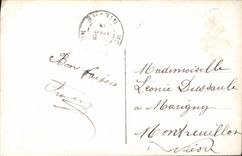 Bon baiser
Mademoiselle
Léonie Dussaule
a Marigny
Montreuillon
Nièvre